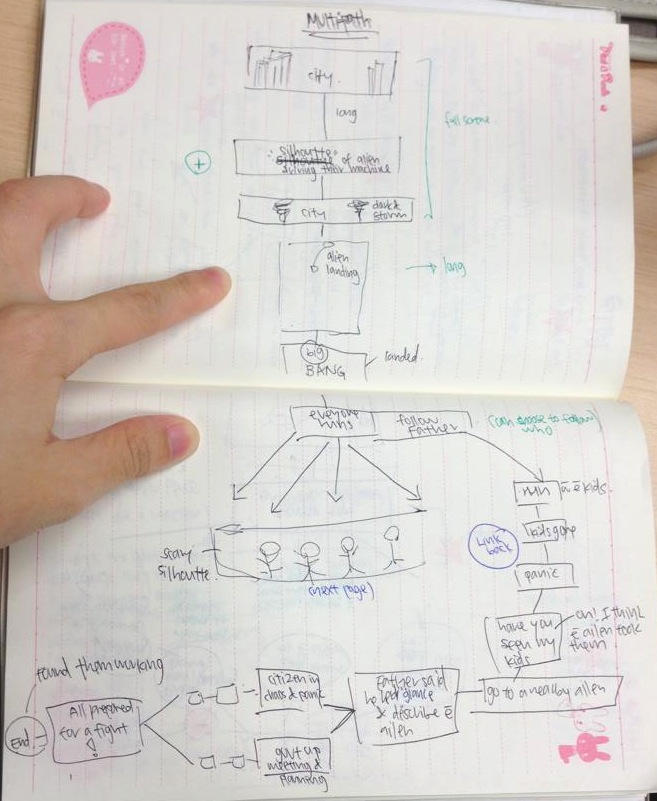 Multipath
city.
long
full screen
silhoutte
of alien
driving their machine
+
city
dark &
storm
alien
landing
long
big
BANG
landed.
everyone
runs
follow
Father
(can choose to follow
who)
run
kids.
Link
back
kids gone
scary
silhoutte.
panic
(next page)
have you
seen my
kids
oh! I think
ē alien took
them
found them working
citizen in
chaos & panic
Father said
he had glance
& describe ē
alien
go to a nearby alien
All prepared
for a fight
!
End
gov't up
meeting &
planning